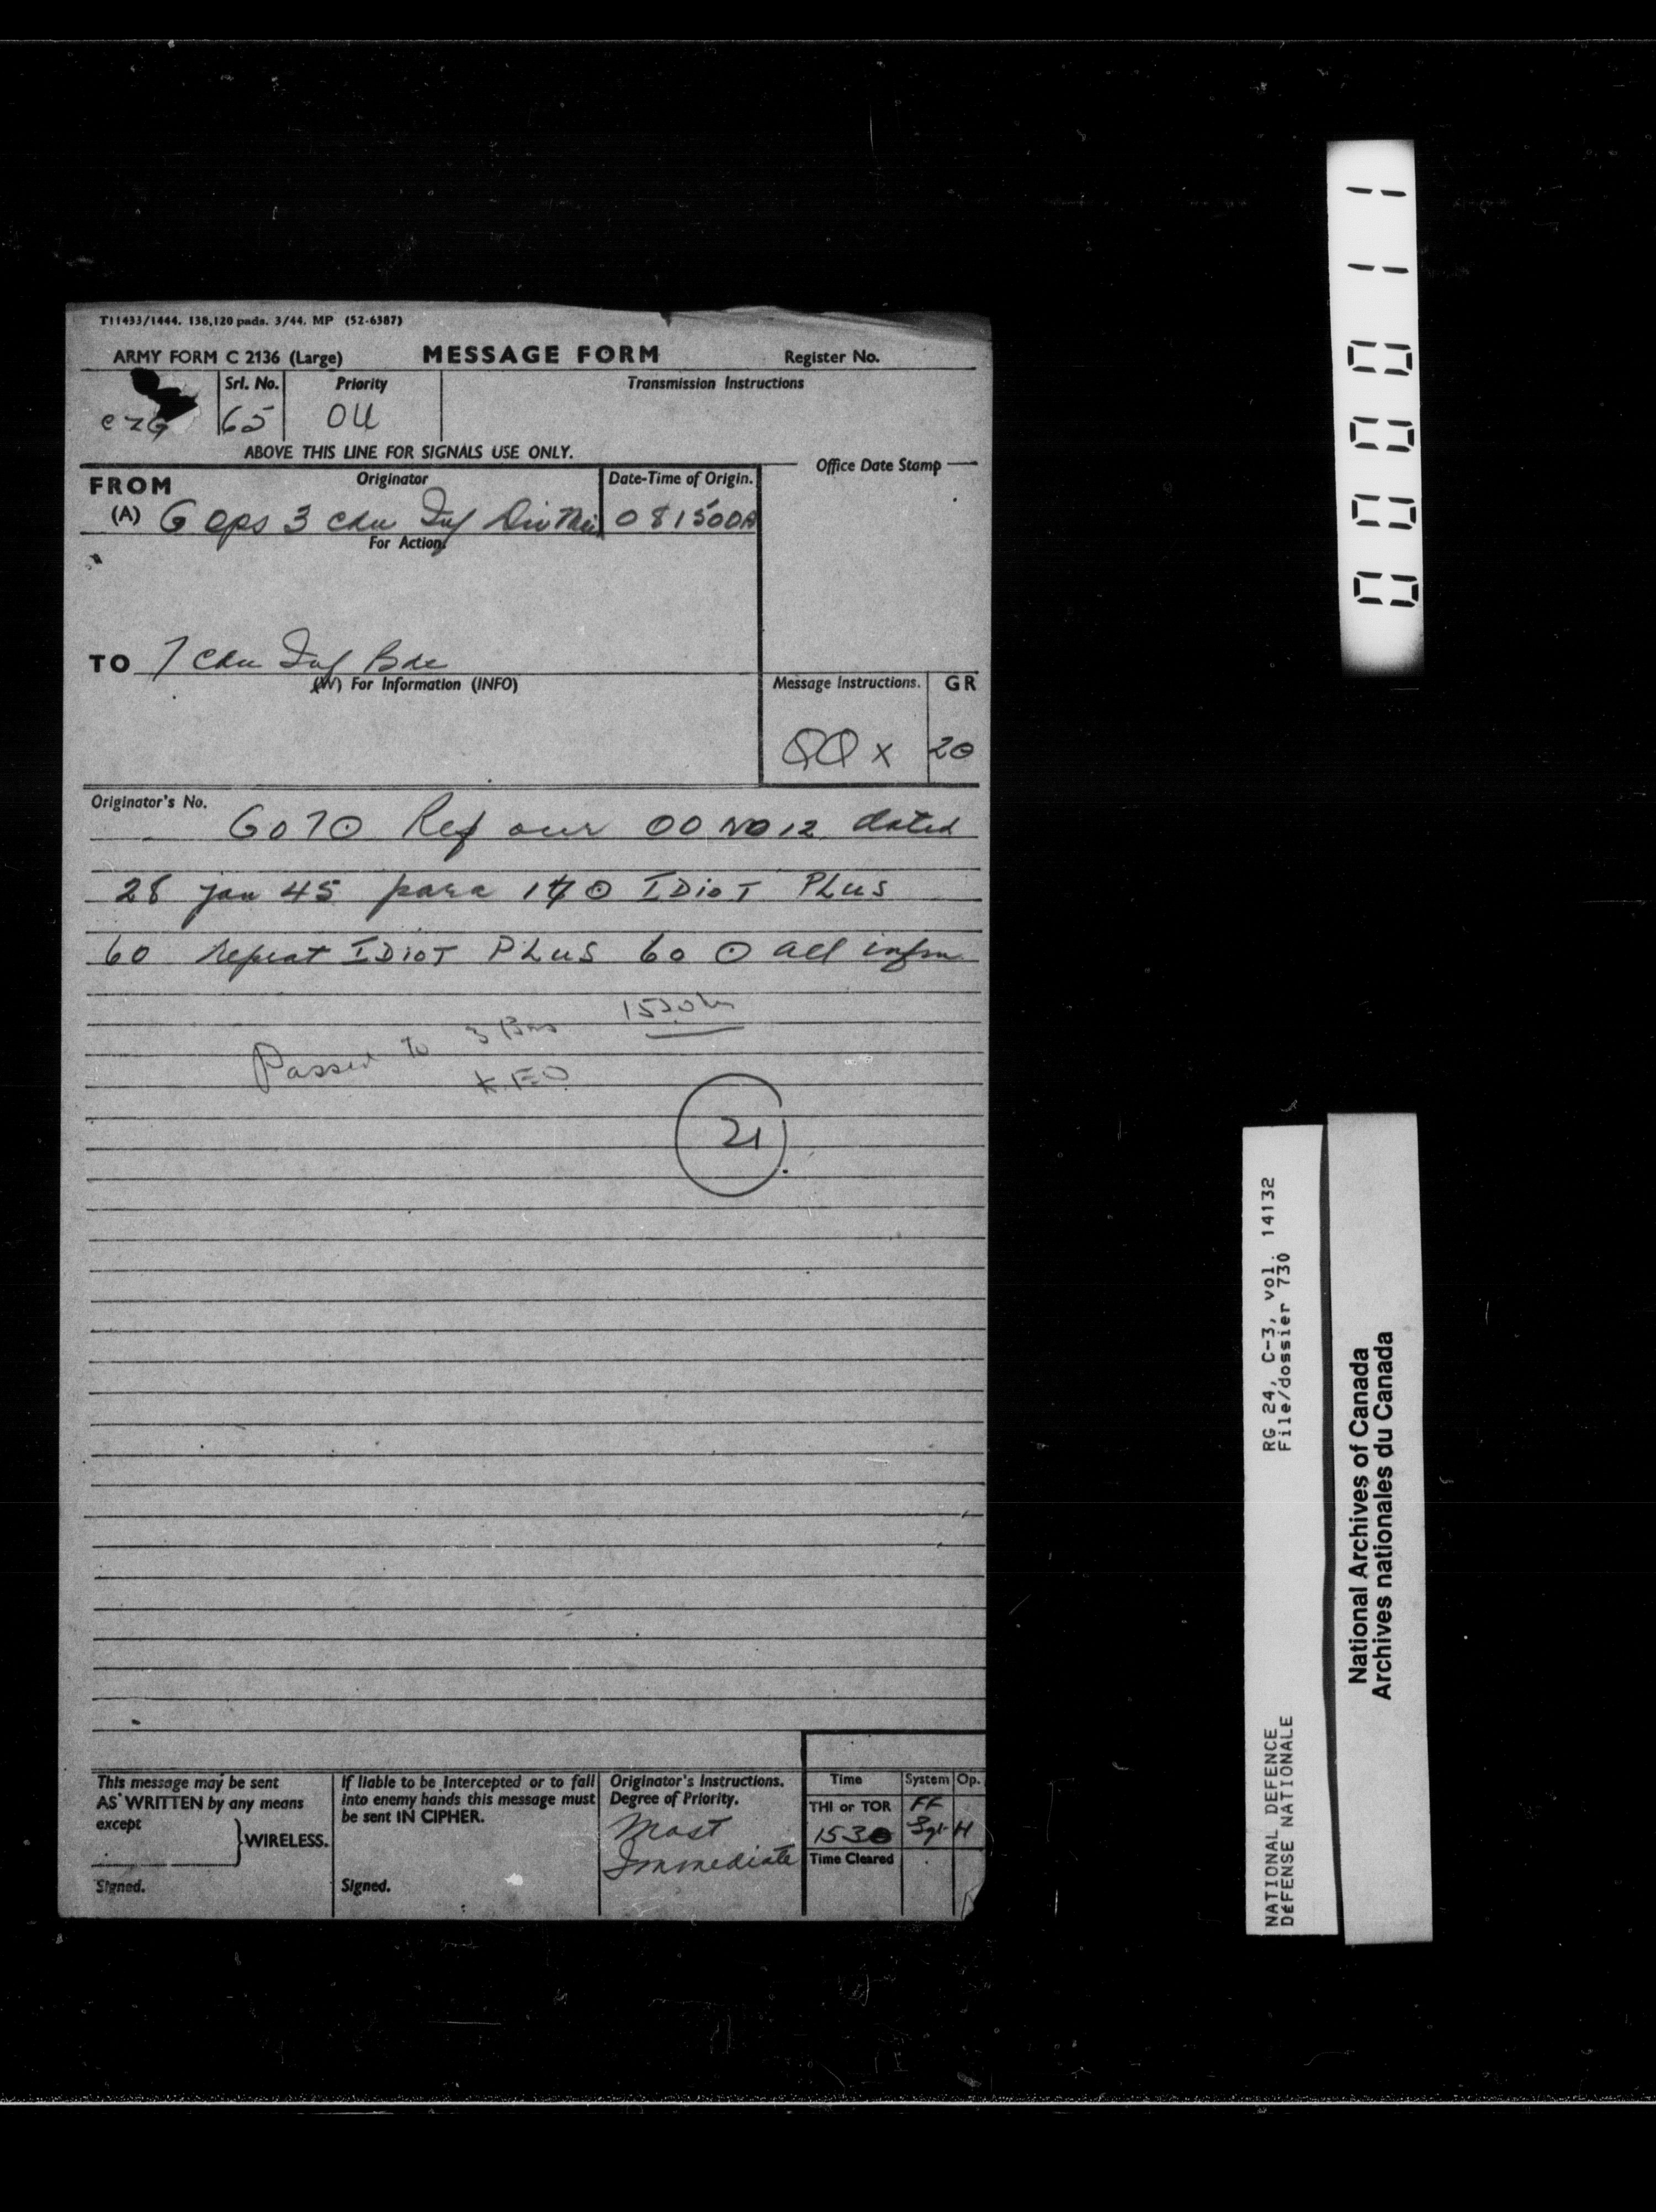 T11433/1444. 138,120 pads. 3/44. MP (52-6387)
ARMY FORM C 2136 (Large) MESSAGE FORM Register No.
Srl. No. Priority Transmission Instructions
CZG 65 OU
ABOVE THIS LINE FOR SIGNALS USE ONLY.
FROM Originator Date-Time of Origin. Office Date Stamp
(A) G Ops 3 Cdn Inf Div 081500A
For Action
TO 7 Cdn Inf Bde
(W) For Information (INFO) Message Instructions. GR
QQ X 20
Originator's No.
G070 Ref our OO NO 12 dated
28 Jan 45 para ⊙ IDIOT PLUS
60 repeat IDIOT PLUS 60 ⊙ all infm
Passed to 3 Bns 1520 hrs
21
This message may be sent
AS WRITTEN by any means
except
WIRELESS.
Signed.
If liable to be intercepted or to fall
into enemy hands this message must
be sent IN CIPHER.
Signed.
Originator's Instructions.
Degree of Priority.
Most
Immediate
Time System Op.
THI or TOR FF
1530 H
Time Cleared
000011
RG 24, C-3, vol. 14132
File/dossier 730
NATIONAL DEFENCE
DÉFENSE NATIONALE
National Archives of Canada
Archives nationales du Canada